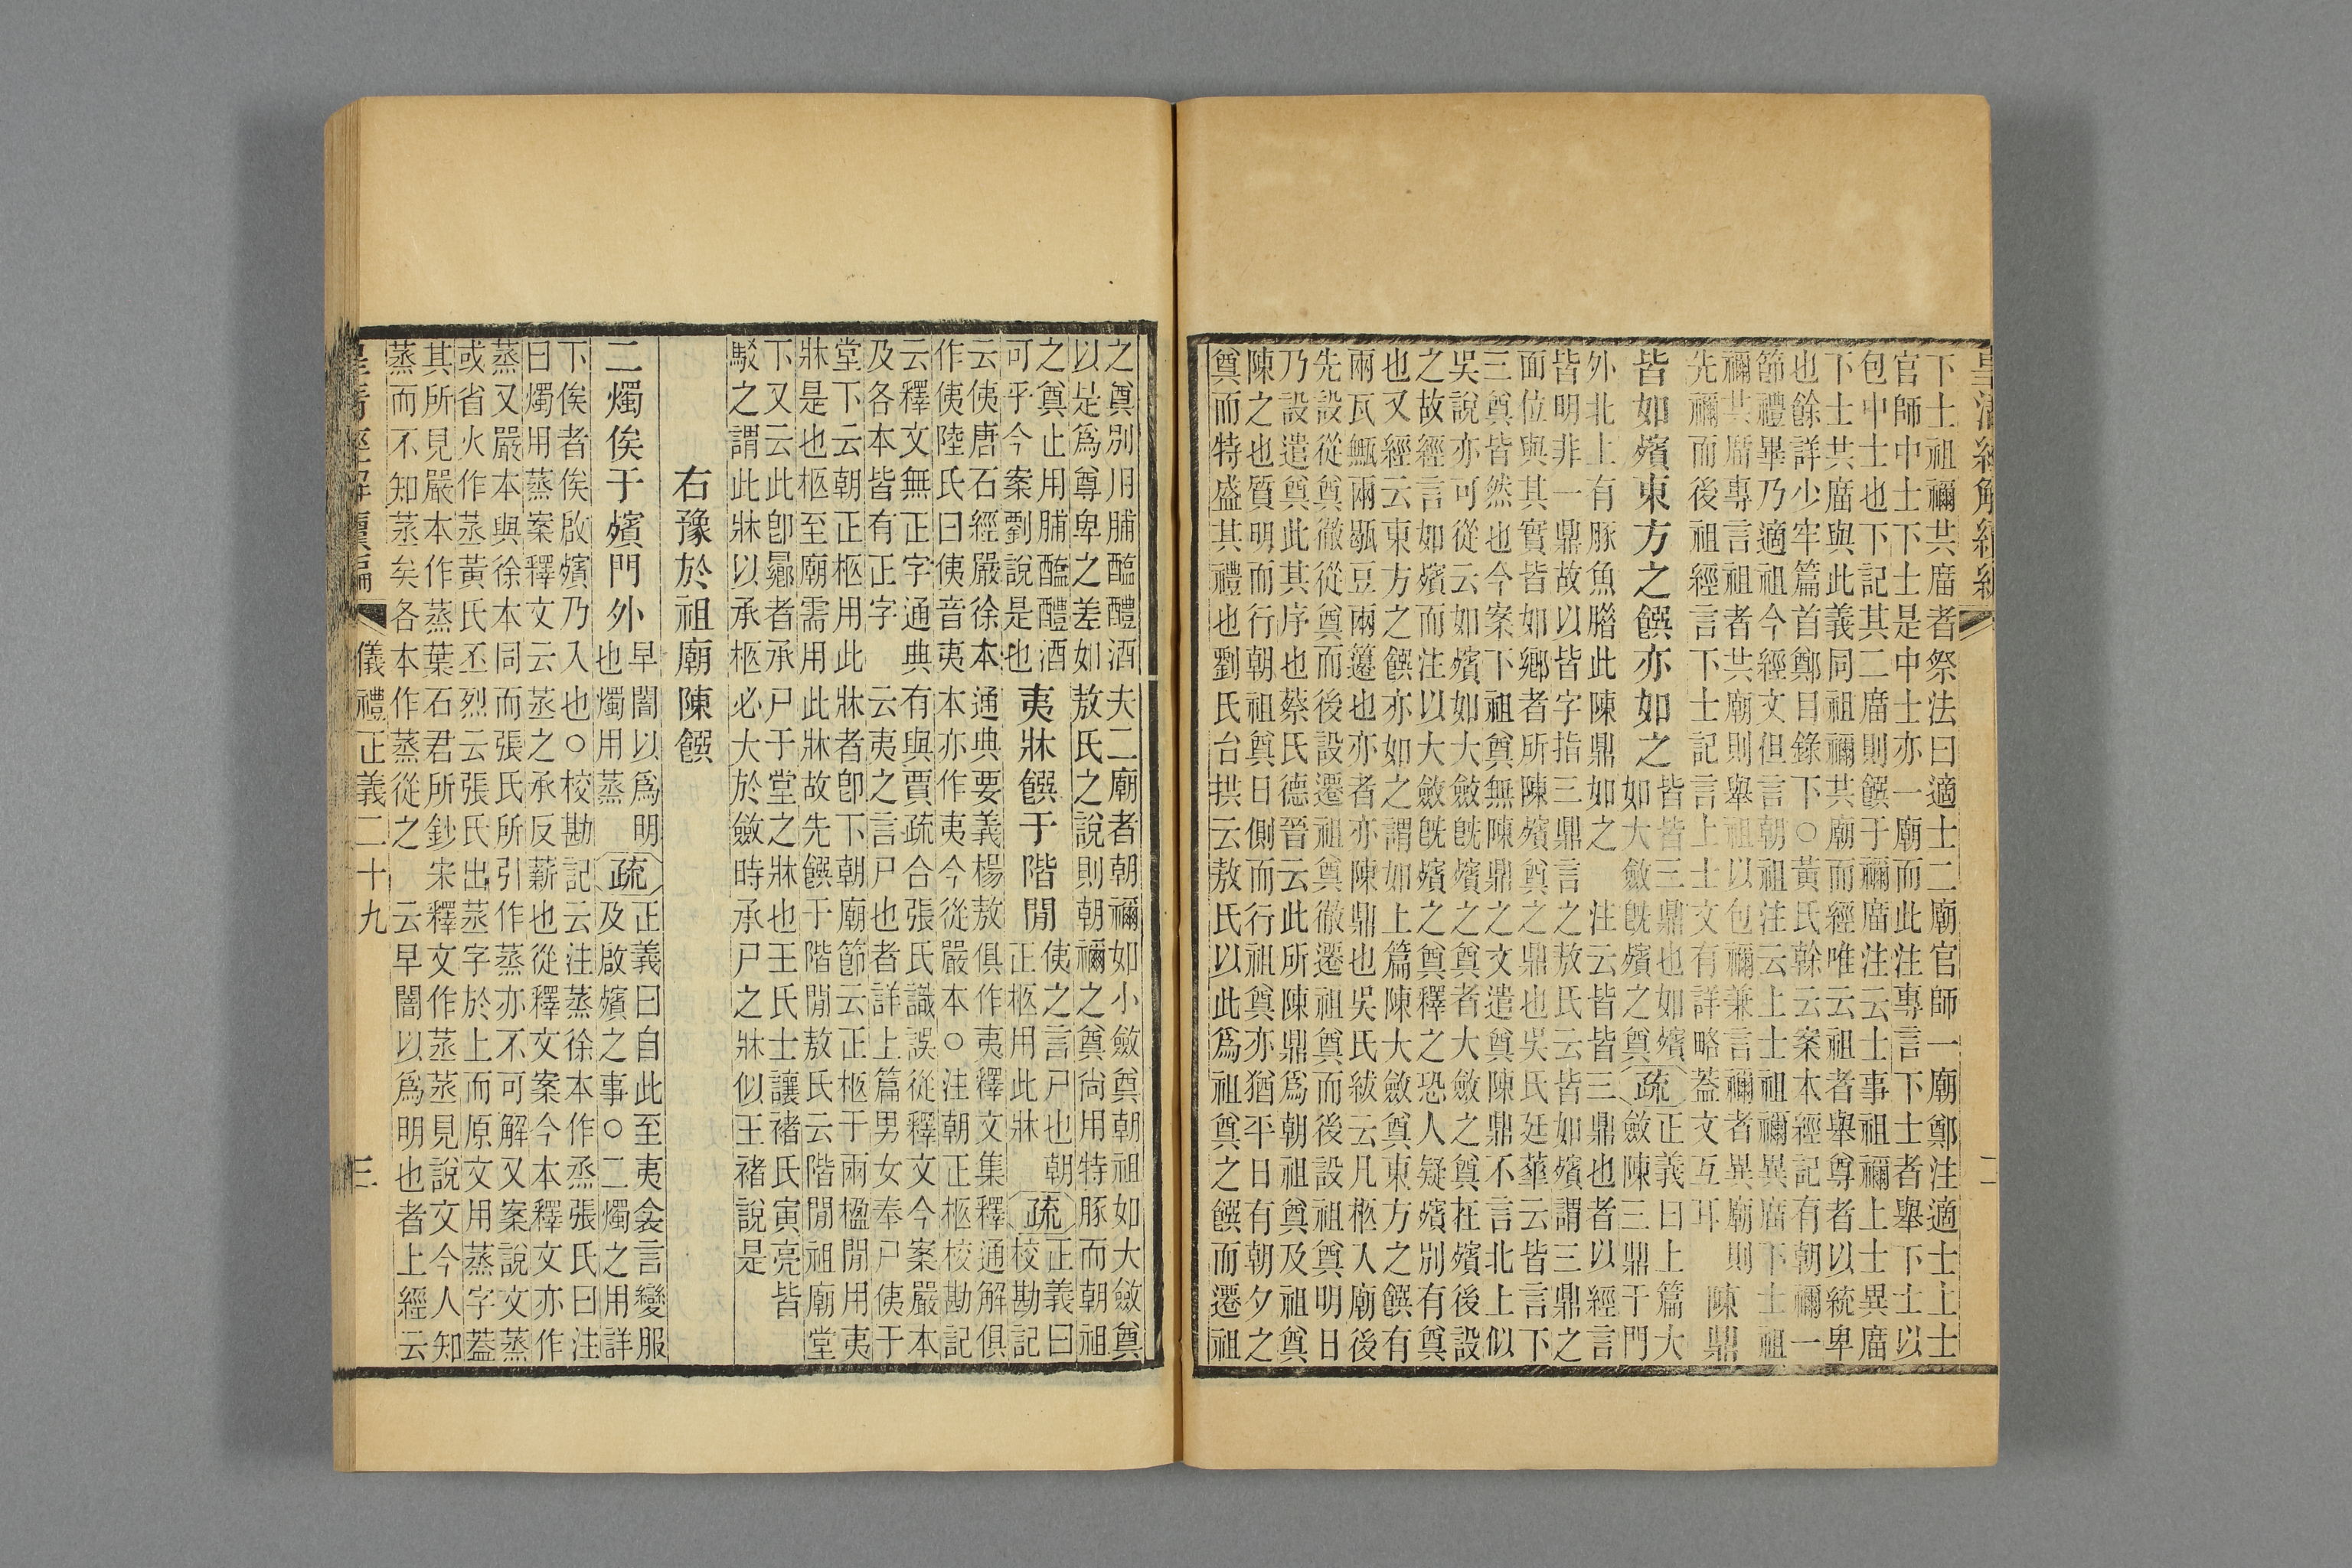 皇清經解續編 二
下士祖禰共庿者祭法曰適士二廟官師一廟鄭注適士上士
官師中士下士是中士亦一廟而此注專言下士者舉下士以
包中士也下記其二庿則饌于禰庿注云士事祖禰上士異庿
下士共庿與此義同祖禰共廟而經唯云祖者舉尊者以統卑
也餘詳少牢篇首鄭目錄下○黃氏榦云案本經記有朝禰一
節禮畢乃適祖今經文但言朝祖注云上士祖禰異庿下士祖
禰共庿專言祖者共廟則舉祖以包禰兼言禰者異廟則
先禰而後祖經言下士記言上士文有詳略蓋文互耳 陳鼎
皆如殯東方之饌亦如之 皆皆三鼎也如殯如大斂旣殯之奠 疏 正義曰上篇大斂陳三鼎于門
外北上有豚魚腊此陳鼎如之 注云皆皆三鼎也者以經言
皆明非一鼎故以皆字指三鼎言之敖氏云皆如殯謂三鼎之
面位與其實皆如鄉者所陳殯奠之鼎也吳氏廷華云皆言下
三奠皆然也今案下祖奠無陳鼎之文遣奠陳鼎不言北上似
吳說亦可從云如殯如大斂旣殯之奠者大斂之奠在殯後設
之故經言如殯而注以大斂旣殯之奠釋之恐人疑殯別有奠
也又經云東方之饌亦如之謂如上篇陳大斂奠東方之饌有
兩瓦甒兩毼豆兩籩也亦者亦陳鼎也吳氏紱云凡柩人廟後
先設從奠徹從奠而後設遷祖奠徹遷祖奠而後設祖奠明日
乃設遣奠此其序也蔡氏德晉云此所陳鼎爲朝祖奠及祖奠
陳之也質明而行朝祖奠日側而行祖奠亦猶平日有朝夕之
奠而特盛其禮也劉氏台拱云敖氏以此爲祖奠之饌而遷祖
之奠別用脯醢醴酒夫二廟者朝禰如小斂奠朝祖如大斂奠
以是爲尊卑之差如敖氏之說則朝禰之奠尙用特豚而朝祖
之奠止用脯醢醴酒
可乎今案劉說是也 夷牀饌于階閒 侇之言尸也朝正柩用此牀 疏 正義曰校勘記
云侇唐石經嚴徐本通典要義楊敖俱作夷釋文集釋通解俱
作侇陸氏曰侇音夷本亦作夷今從嚴本○注朝正柩校勘記
云釋文無正字通典有與賈疏合張氏識誤從釋文今案嚴本
及各本皆有正字 云夷之言尸也者詳上篇男女奉尸侇于
堂下云朝正柩用此牀者卽下朝廟節云正柩于兩楹閒用夷
牀是也柩至廟需用此牀故先饌于階閒敖氏云階閒祖廟堂
下又云此卽曏者承尸于堂之牀也王氏士讓褚氏寅亮皆
駁之謂此牀以承柩必大於斂時承尸之牀似王褚說是
右豫於祖廟陳饌
二燭俟于殯門外 早闇以爲明也燭用蒸 疏 正義曰自此至夷衾言變服及啟殯之事○二燭之用詳
下俟者俟啟殯乃入也○校勘記云注蒸徐本作烝張氏曰注
曰燭用蒸案釋文云烝之承反薪也從釋文案今本釋文亦作
蒸又嚴本與徐本同而張氏所引作蒸亦不可解又案說文蒸
或省火作䒱黃氏丕烈云張氏出䒱字於上而原文用蒸字蓋
其所見嚴本作蒸葉石君所鈔宋釋文作䒱䒱見說文今人知
蒸而不知䒱矣各本作蒸從之 云早闇以爲明也者上經云
皇清經解續編 儀禮正義二十九 三